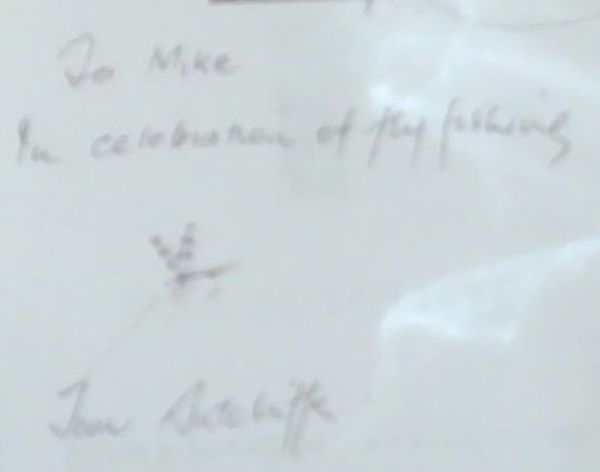 To Mike
In celebration of fly fishing
Tom Sutcliffe